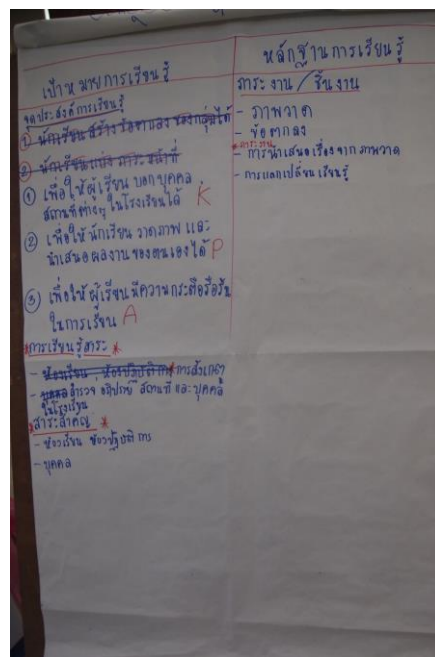 เป้าหมายการเรียนรู้
จุดประสงค์การเรียนรู้
① นักเรียนสร้างข้อตกลงของกลุ่มได้
② นักเรียนแบ่งภาระหน้าที่
① เพื่อให้ผู้เรียน บอกบุคคล
สถานที่ต่างๆ ในโรงเรียนได้ K
② เพื่อให้นักเรียน วาดภาพ และ
นำเสนอผลงานของตนเองได้ P
③ เพื่อให้ผู้เรียนมีความกระตือรือร้น
ในการเรียน A
*การเรียนรู้สาระ *
- ห้องเรียน ห้องปฏิบัติการ* การสังเกต
- บุคคล สำรวจ อภิปราย สถานที่ และ บุคคล
ในโรงเรียน
*สาระสำคัญ *
- ห้องเรียน ห้องปฏิบัติการ
- บุคคล
หลักฐานการเรียนรู้
ภาระงาน / ชิ้นงาน
- ภาพวาด
- ข้อตกลง
*ภาระงาน
- การนำเสนอเรื่องจากภาพวาด
- การแลกเปลี่ยนเรียนรู้